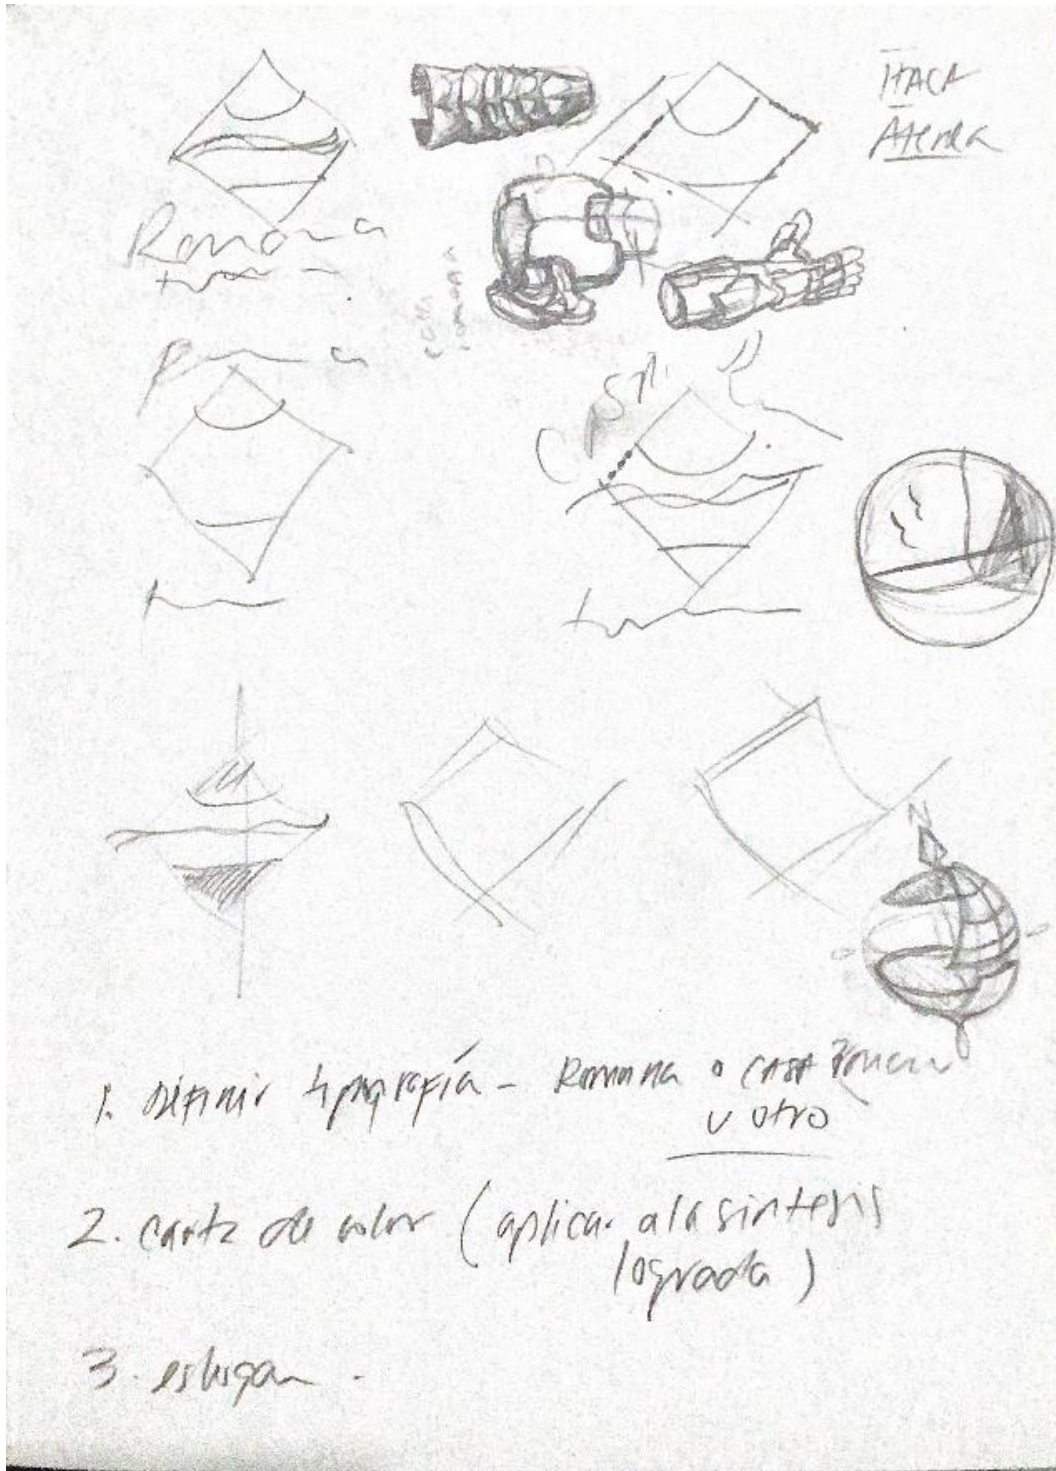 ITACA
Atenea
Romana
casa
romana
1. Definir tipografía - Romana o CASA Romana
u otro
2. carta de color (aplicar a la síntesis
lograda)
3. eslogan.